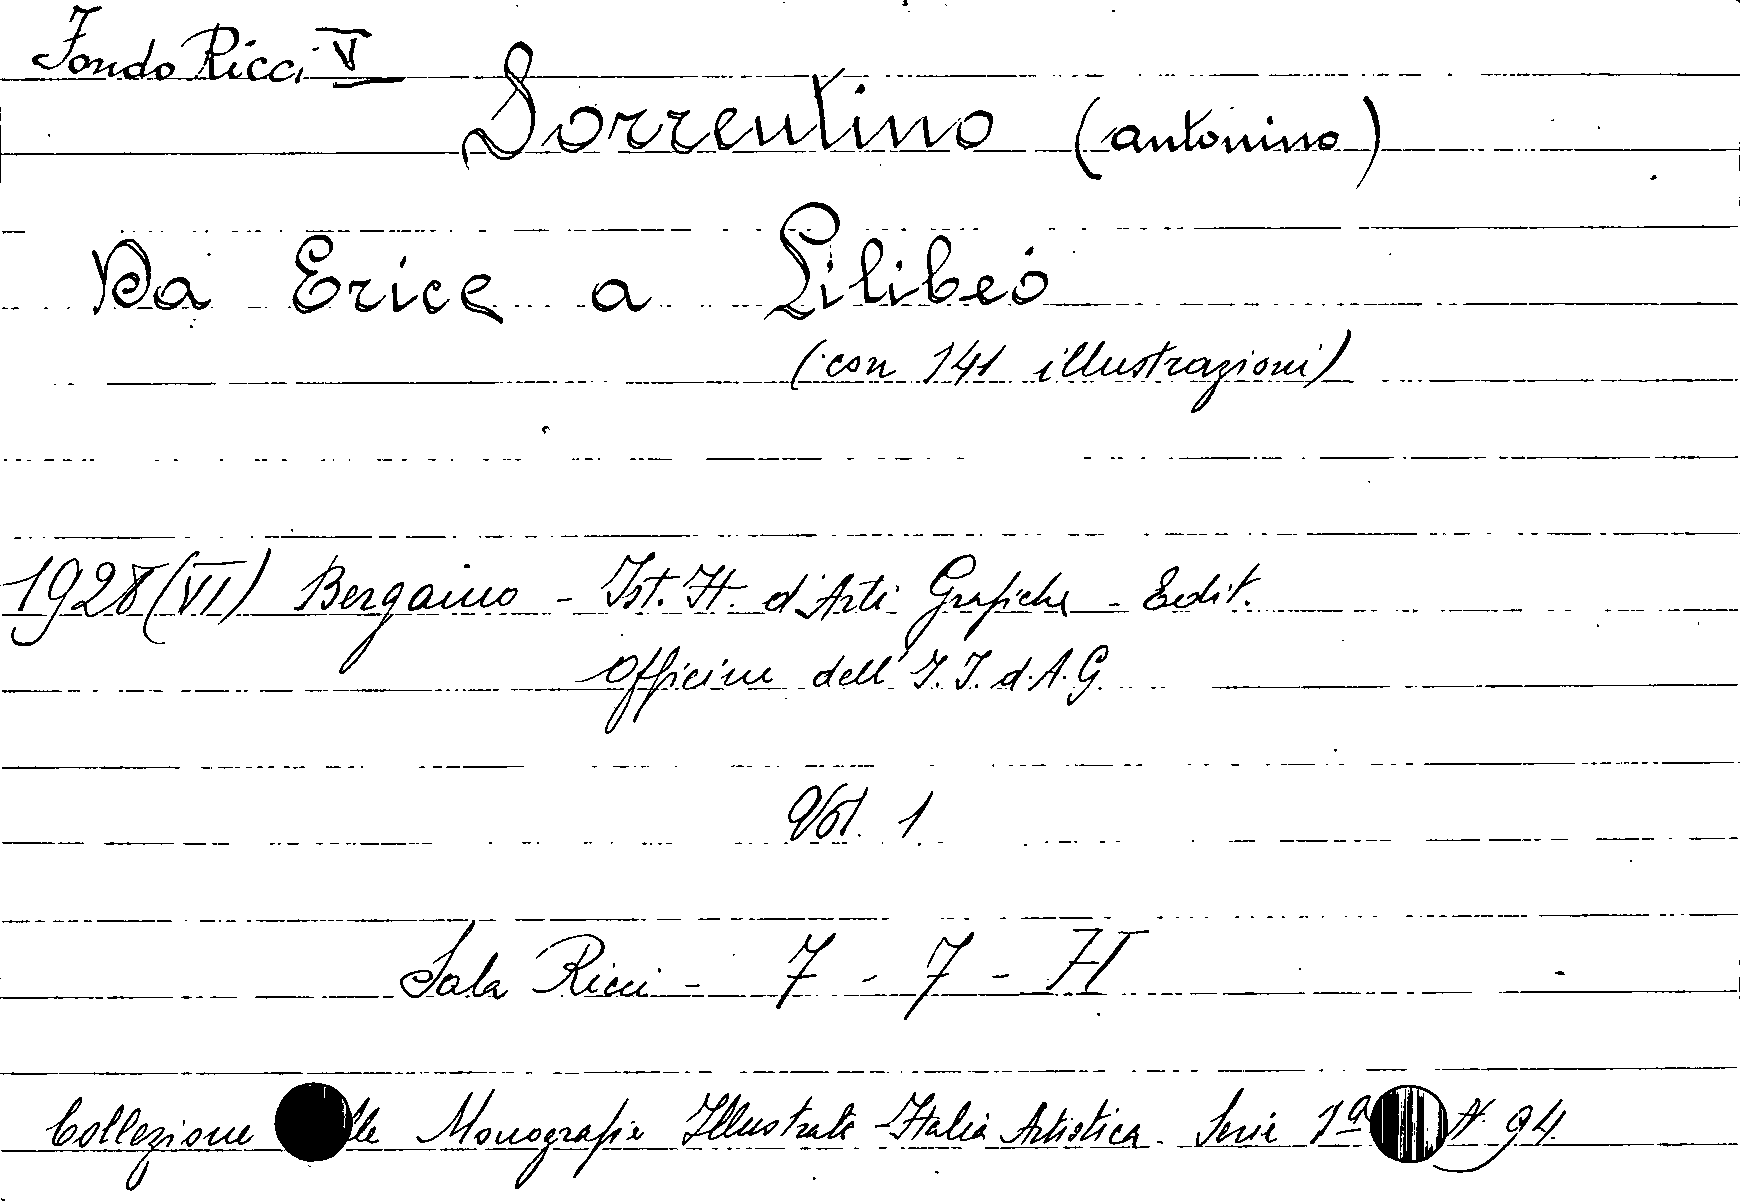 Fondo Ricci V
Sorrentino (Antonino)
Da Erice a Lilibeo
(con 141 illustrazioni)
1928 (VI) Bergamo - Ist. It. d'Arti Grafiche - Edit.
Officine dell' I. I. d. A. G.
Vol. 1
Sala Ricci - 7 - 7 - H
Collezione delle Monografie Illustrate - Italia Artistica. Serie 1ª N. 94